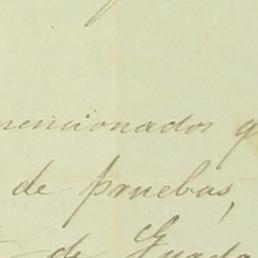 mencionados q
de pruebas,
de Guada